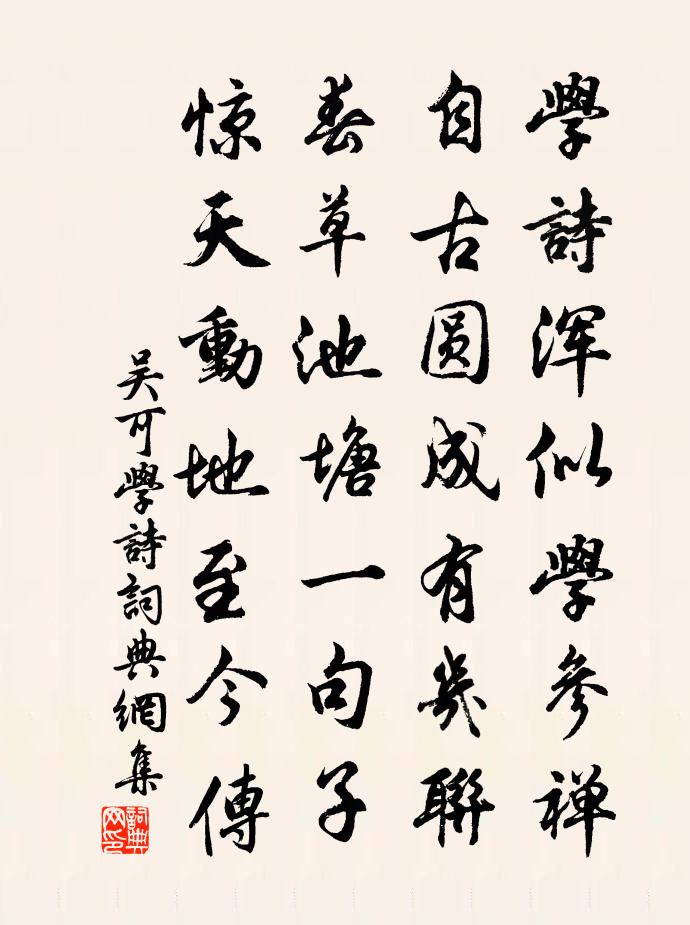 學詩浑似學參禅
自古圆成有幾聯
春草池塘一句子
惊天動地至今傳
吴可學詩詞典網集
詞典网印